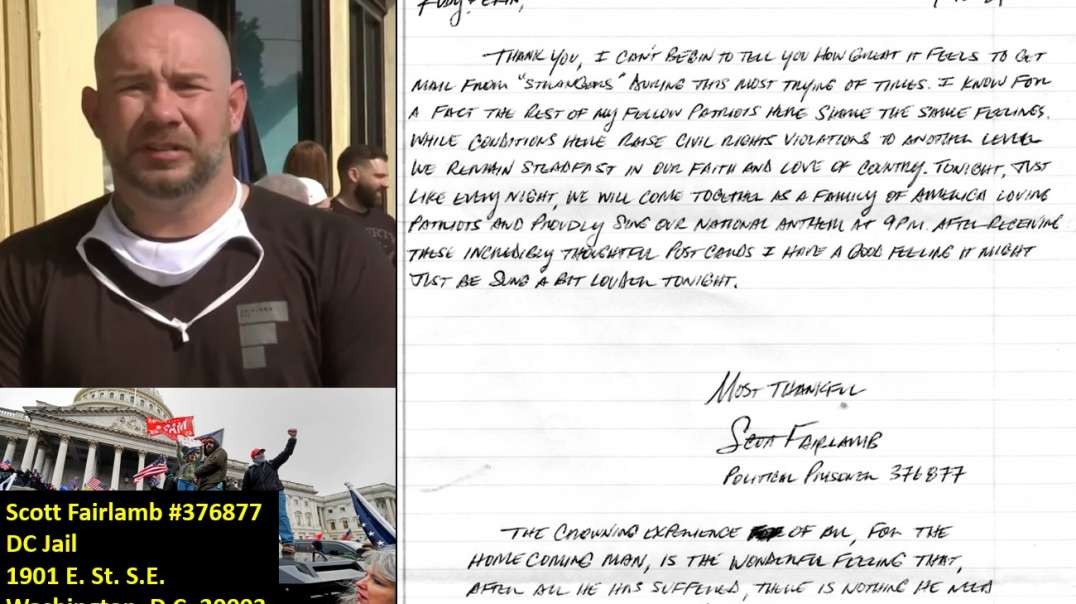 THANK YOU, I CAN'T BEGIN TO TELL YOU HOW GREAT IT FEELS TO GET
MAIL FROM "STRANGERS" DURING THIS MOST TRYING OF TIMES. I KNOW FOR
A FACT THE REST OF MY FELLOW PATRIOTS HERE SHARE THE SAME FEELINGS.
WHILE CONDITIONS HERE RAISE CIVIL RIGHTS VIOLATIONS TO ANOTHER LEVEL
WE REMAIN STEADFAST IN OUR FAITH AND LOVE OF COUNTRY. TONIGHT, JUST
LIKE EVERY NIGHT, WE WILL COME TOGETHER AS A FAMILY OF AMERICA LOVING
PATRIOTS AND PROUDLY SING OUR NATIONAL ANTHEM AT 9PM. AFTER RECEIVING
THESE INCREDIBLY THOUGHTFUL POST CARDS I HAVE A GOOD FEELING IT MIGHT
JUST BE SUNG A BIT LOUDER TONIGHT.
MOST THANKFUL
SCOTT FAIRLAMB
POLITICAL PRISONER 376877
THE CROWNING EXPERIENCE OF ALL, FOR THE
HOMECOMING MAN, IS THE WONDERFUL FEELING THAT,
AFTER ALL HE HAS SUFFERED, THERE IS NOTHING HE NEED
Scott Fairlamb #376877
DC Jail
1901 E. St. S.E.
Washington, D.C. 20003